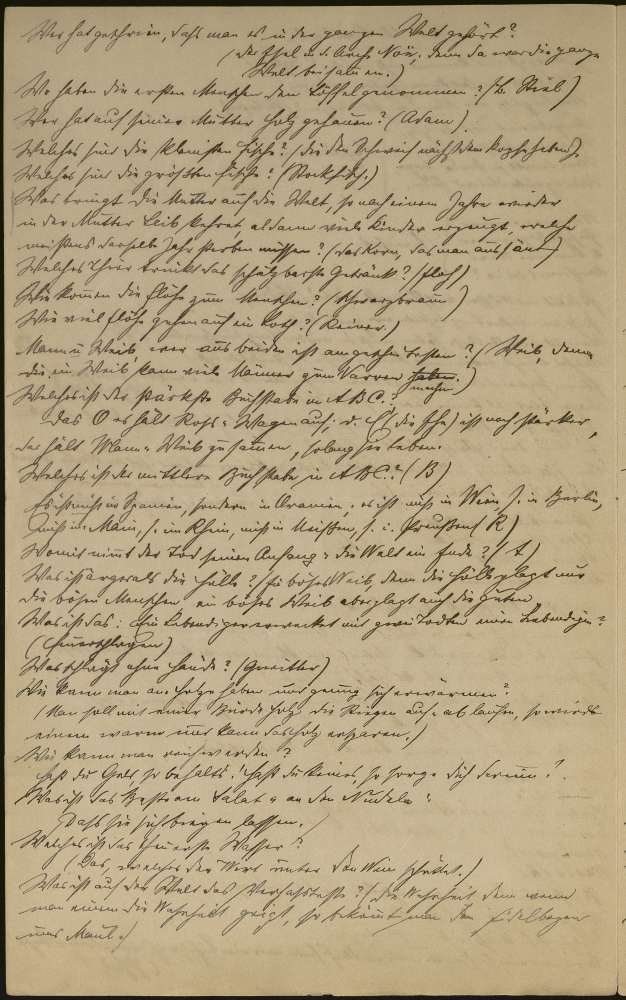 Wer hat geschrien, daß man es in der ganzen Welt gehört?
(der Esel in d. Arche Noä, denn da war die ganze
Welt beisamen.)
Wo haben die ersten Menschen den Löffel genommen? (b. Stiel)
Wer hat auf seiner Mutter Holz gehauen? (Adam)
Welches sind die kleinsten Fische? (die den Schweif nächst dem Kopfe haben)
Welches sind die größten Fische? (Stockfisch.)
Was bringt die Mutter auf die Welt, so nach einem Jahre wieder
in der Mutter Leib kehret, alsdann viele Kinder erzeugt, welche
meistens dasselbe Jahr sterben müssen? (das Korn, das man aussäet)
Welches Thier trinkt das schätzbarste Getränk? (Floh)
Wie komen die Flöhe zum Menschen? (Schwarzbraun)
Wie viel Flöhe gehen auf ein Loth? (Keiner.)
Mann u. Weib, wer aus beiden ist am
 besten? (Weib, denn
die, ein Weib, kann viele Männer zum Narren haben.)
machen
Welches ist der stärkste Buchstabe im ABC.?
Das O es hält Roß u. Wagen auf; d. E (die Ehe) ist noch stärker,
der hält Mann u. Weib zusamen, solang sie leben.
Welches ist der mittlere Buchstabe im ABC.? (B)
Es ist nicht in Spanien, sondern in Oranien, es ist nicht in Wien, s. in Berlin,
nicht im Main, s. im Rhein, nicht in Meißen, s. i. Preußen (R)
Womit nimt der Tod seinen Anfang u. die Welt ein Ende? (t)
Was ist ärger als die Hölle? (Ein böses Weib, denn die Hölle plagt nur
die bösen Menschen, ein böses Weib aber plagt auch die guten
Was ist das: Ein Lebendiger erwecket mit zwei Todten einen Lebendigen?
(Feuerschlagen)
Was schlägt ohne Hände? (Gewitter)
Wie kann man an Holze haben und genug sich erwärmen?
(Man soll mit einer Bürde Holz die Stiegen auf u. ab laufen, so wird
einem warm und kann das Holz ersparen.)
Wie kann man reich werden?
Hast du Geld, so behalts! Hast du keines, so sorge dich darum!
Was ist das Beste am Salat u. an den Nudeln?
Daß sie sich biegen lassen.
Welches ist das theuerste Wasser?
(Das, welches der Wirt unter den Wein schüttet.)
Was ist auf der Welt das Verhaßteste? (Die Wahrheit denn wenn
man einem die Wahrheit geigt, so bekömt man den Fidelbogen
ums Maul.)